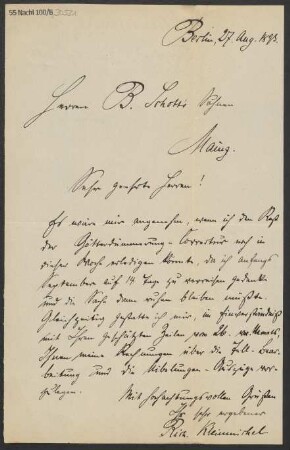 55 Nachl 100/B,
Berlin, 27. Aug. 1893.
Herren B. Schott's Söhnen
Mainz.
Sehr geehrte Herren!
Es wäre mir angenehm, wenn ich den Rest
der Götterdämmerung-Correctur noch in
dieser Woche erledigen könnte, da ich anfangs
September auf 14 Tage zu verreisen gedenke
und die Sache dann ruhen bleiben müßte.
Gleichzeitig gestatte ich mir, im Einverständniß
mit Ihren geschätzten Zeilen vom 26. 
Ihnen meine Rechnungen über die Tell-Bear-
beitung und die Nibelungen-Auszüge vor-
zulegen.
Mit hochachtungsvollen Grüßen
Ihr sehr ergebener
Rich. Kleinmichel